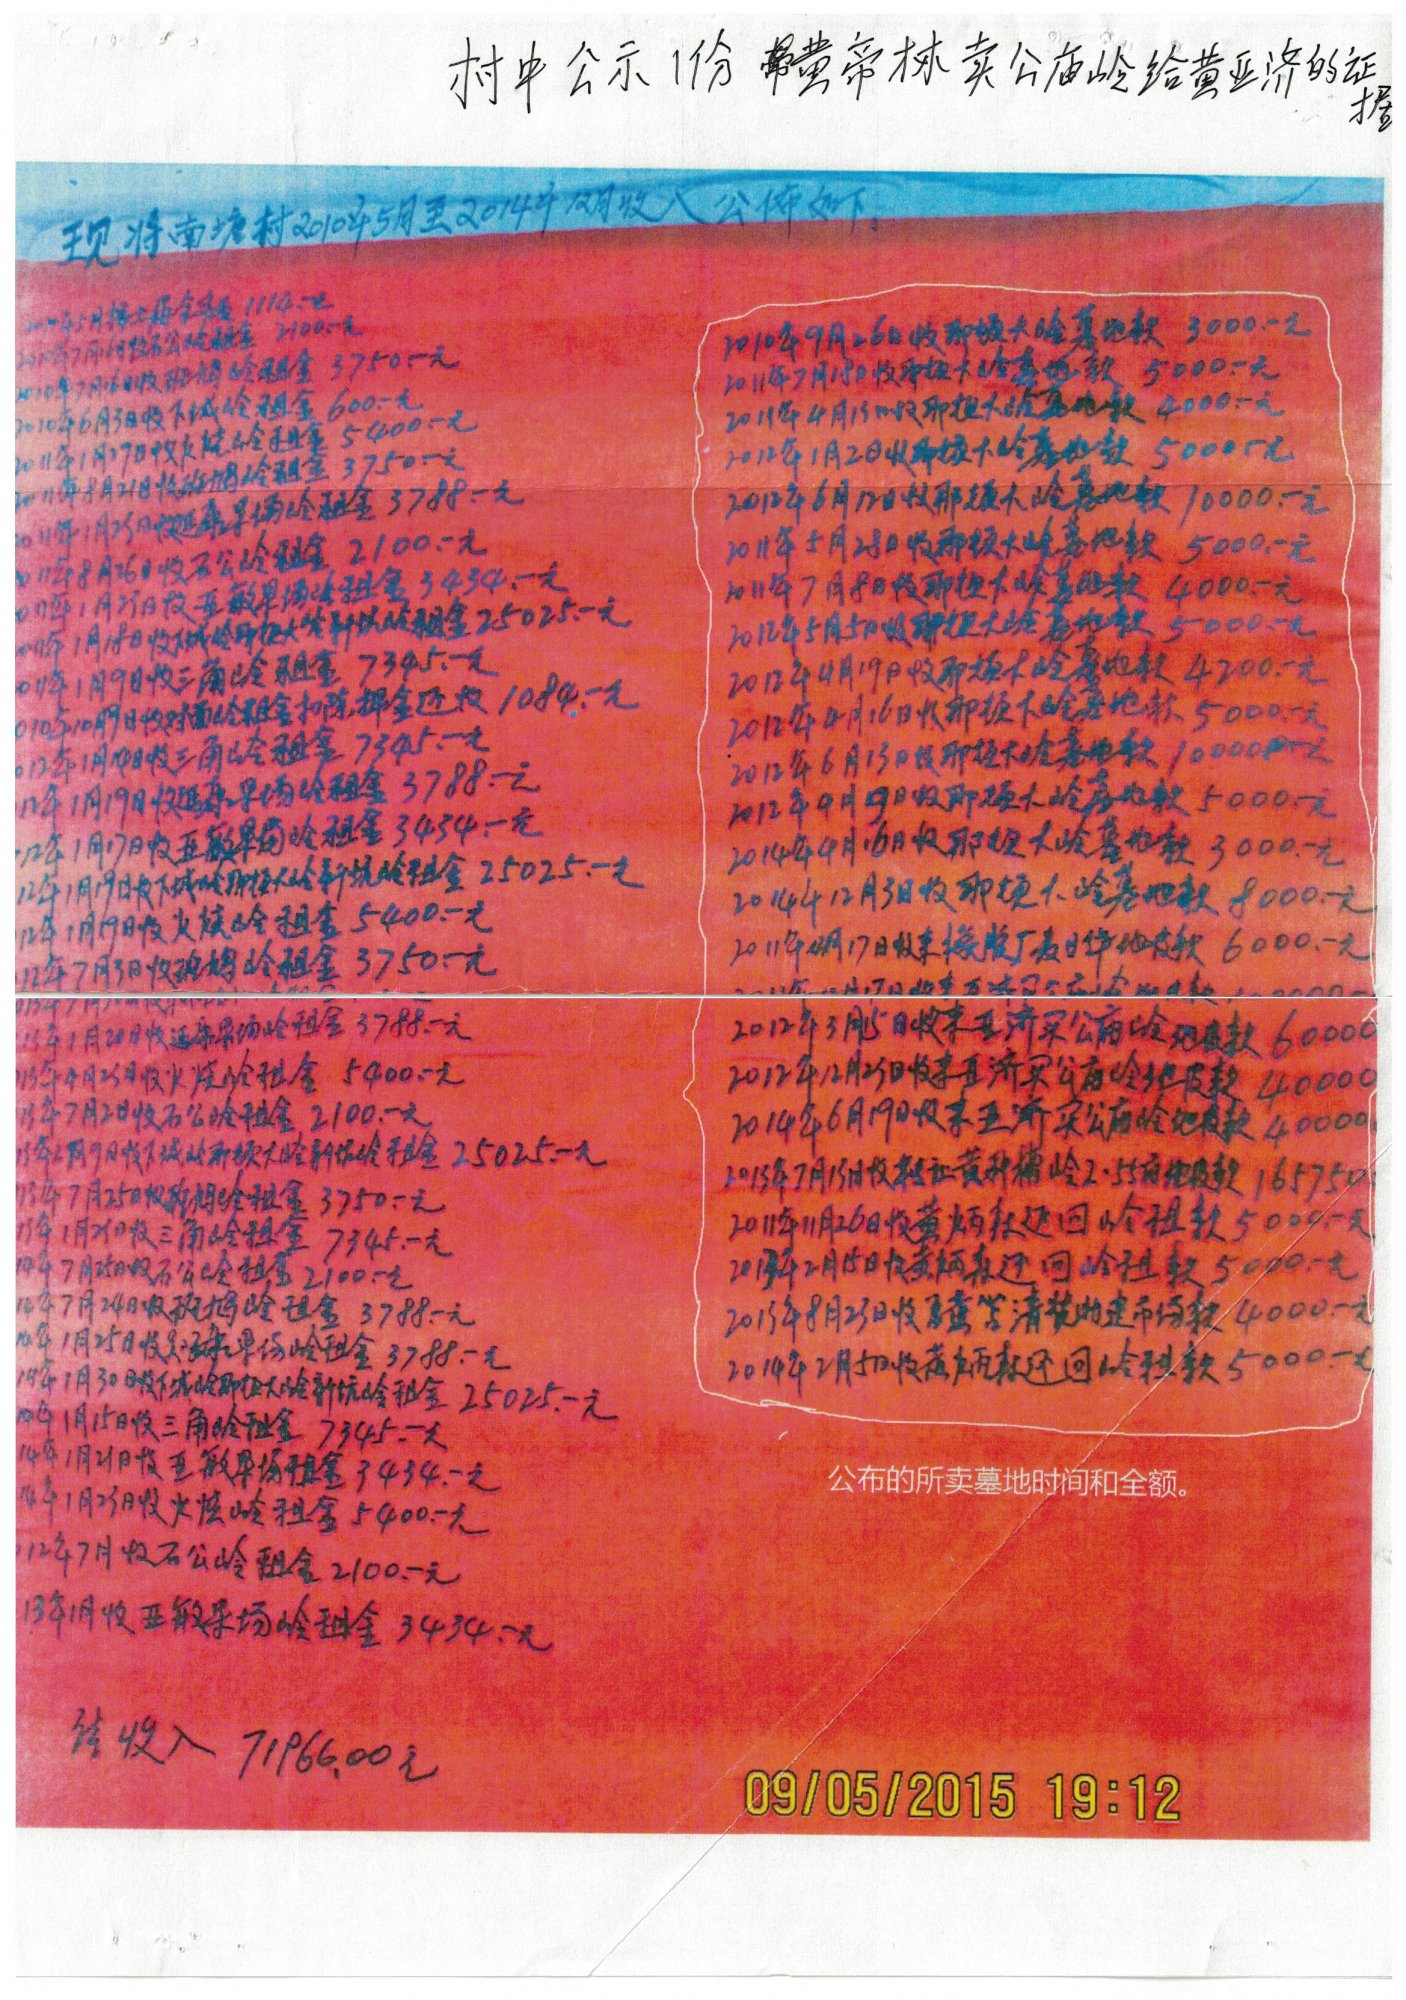 村中公示1份 黄帝林卖公庙岭给黄亚济的证
据
现将南塘村2010年5月至2014年12月收入公佈如下:
1114.-元
2010年7月16收石公岭租金 2100.-元
2010年7月16日收斑鸠岭租金 3750.-元
2010年6月3日收下城岭租金 600.-元
2011年1月27日收火烧岭租金 5400.-元
2011年8月21日收斑鸠岭租金 3750.-元
011年1月25日收延康果场岭租金 3788.-元
011年8月26日收石公岭租金 2100.-元
年1月25日收亚敏果场岭租金 3434.-元
011年1月18日收下城岭那顿大岭新坑岭租金 25025.-元
011年1月9日收三角岭租金 7345.-元
010年10月9日收 岭租金扣除押金还收 1084.-元
012年1月 日收三角岭租金 7345.-元
12年1月19日收延康果场岭租金 3788.-元
12年1月17日收亚敏果场岭租金 3434.-元
12年1月19日收下城岭那顿大岭新坑岭租金 25025.-元
12年1月19日收火烧岭租金 5400.-元
12年7月3日收斑鸠岭租金 3750.-元
13年1月20日收延康果场岭租金 3788.-元
013年4月25日收火烧岭租金 5400.-元
13年7月2日收石公岭租金 2100.-元
13年2月9日收下城岭那顿大岭新坑岭租金 25025.-元
13年7月25日收斑鸠岭租金 3750.-元
13年1月25日收三角岭租金 7345.-元
14年7月25日收石公岭租金 2100.-元
14年7月24日收斑鸠岭租金 3788.-元
14年1月25日收 果场岭租金 3788.-元
14年1月30日收下城岭那顿大岭新坑岭租金 25025.-元
14年1月15日收三角岭租金 7345.-元
14年1月21日收亚敏果场租金 3434.-元
14年1月25日收火烧岭租金 5400.-元
012年7月收石公岭租金 2100.-元
13年1月收亚敏果场岭租金 3434.-元
收入 71966.00元
2010年9月26日收那顿大岭墓地款 3000.-元
2011年7月18日收那顿大岭墓地款 5000.-元
2011年4月15日收那顿大岭墓地款 4000.-元
2012年1月2日收那顿大岭墓地款 5000.-元
2012年6月12日收那顿大岭墓地款 10000.-元
2011年5月28日收那顿大岭墓地款 5000.-元
2011年7月8日收那顿大岭墓地款 4000.-元
2012年5月5日收那顿大岭墓地款 5000.-元
2012年4月19日收那顿大岭墓地款 4200.-元
2012年4月16日收那顿大岭墓地款 5000.-元
2012年6月13日收那顿大岭墓地款 10000.-元
2012年9月9日收那顿大岭墓地款 5000.-元
2014年4月16日收那顿大岭墓地款 3000.-元
2014年12月3日收那顿大岭墓地款 8000.-元
2011年 月17日收来橡胶厂 地皮款 6000.-元
2012年3月15日收来亚济买公庙岭地皮款 60000
2012年12月25日收来亚济买公庙岭地皮款 40000
2014年6月19日收来亚济买公庙岭地皮款 40000
2013年7月15日收 黄 岭2.55亩地皮款 165750
2011年11月26日收黄炳 还回岭租款 5000.-元
2013年2月15日收黄炳 还回岭租款 5000.-元
2013年8月23日收 清 地建市场款 4000.-元
2014年2月5日收黄炳 还回岭租款 5000.-元
公布的所卖墓地时间和全额。
09/05/2015 19:12